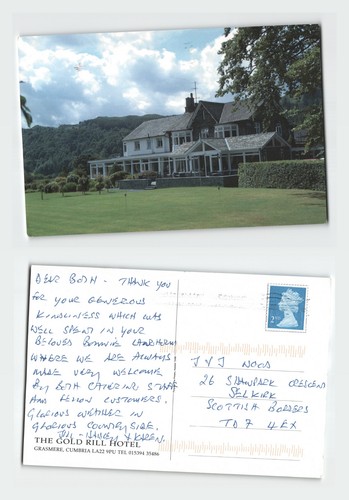 DEAR BOTH - THANK YOU
FOR YOUR GENEROUS
KINDLINESS WHICH WAS
WELL SPENT IN YOUR
BELOVED BONNIE
WHERE WE ARE ALWAYS
MADE VERY WELCOME
BY BOTH CATERING STAFF
AND FELLOW CUSTOMERS.
GLORIOUS WEATHER IN
GLORIOUS COUNTRYSIDE.
& KAREN.
THE GOLD RILL HOTEL
GRASMERE, CUMBRIA LA22 9PU TEL 015394 35486
2nd
J & J WOOD
26 SHAWPARK CRESCENT
SELKIRK
SCOTTISH BORDERS
TD7 4EX